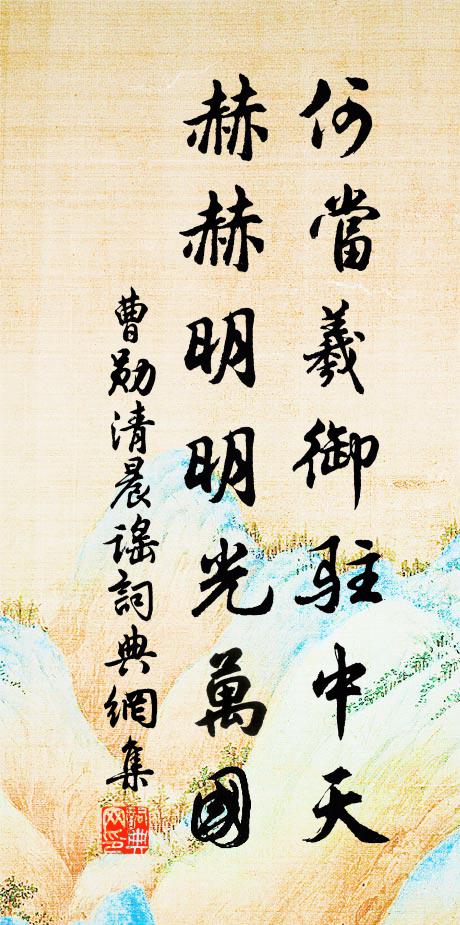 何當羲御駐中天
赫赫明明光萬國
曹勛清晨謠詞典網集
詞典網印